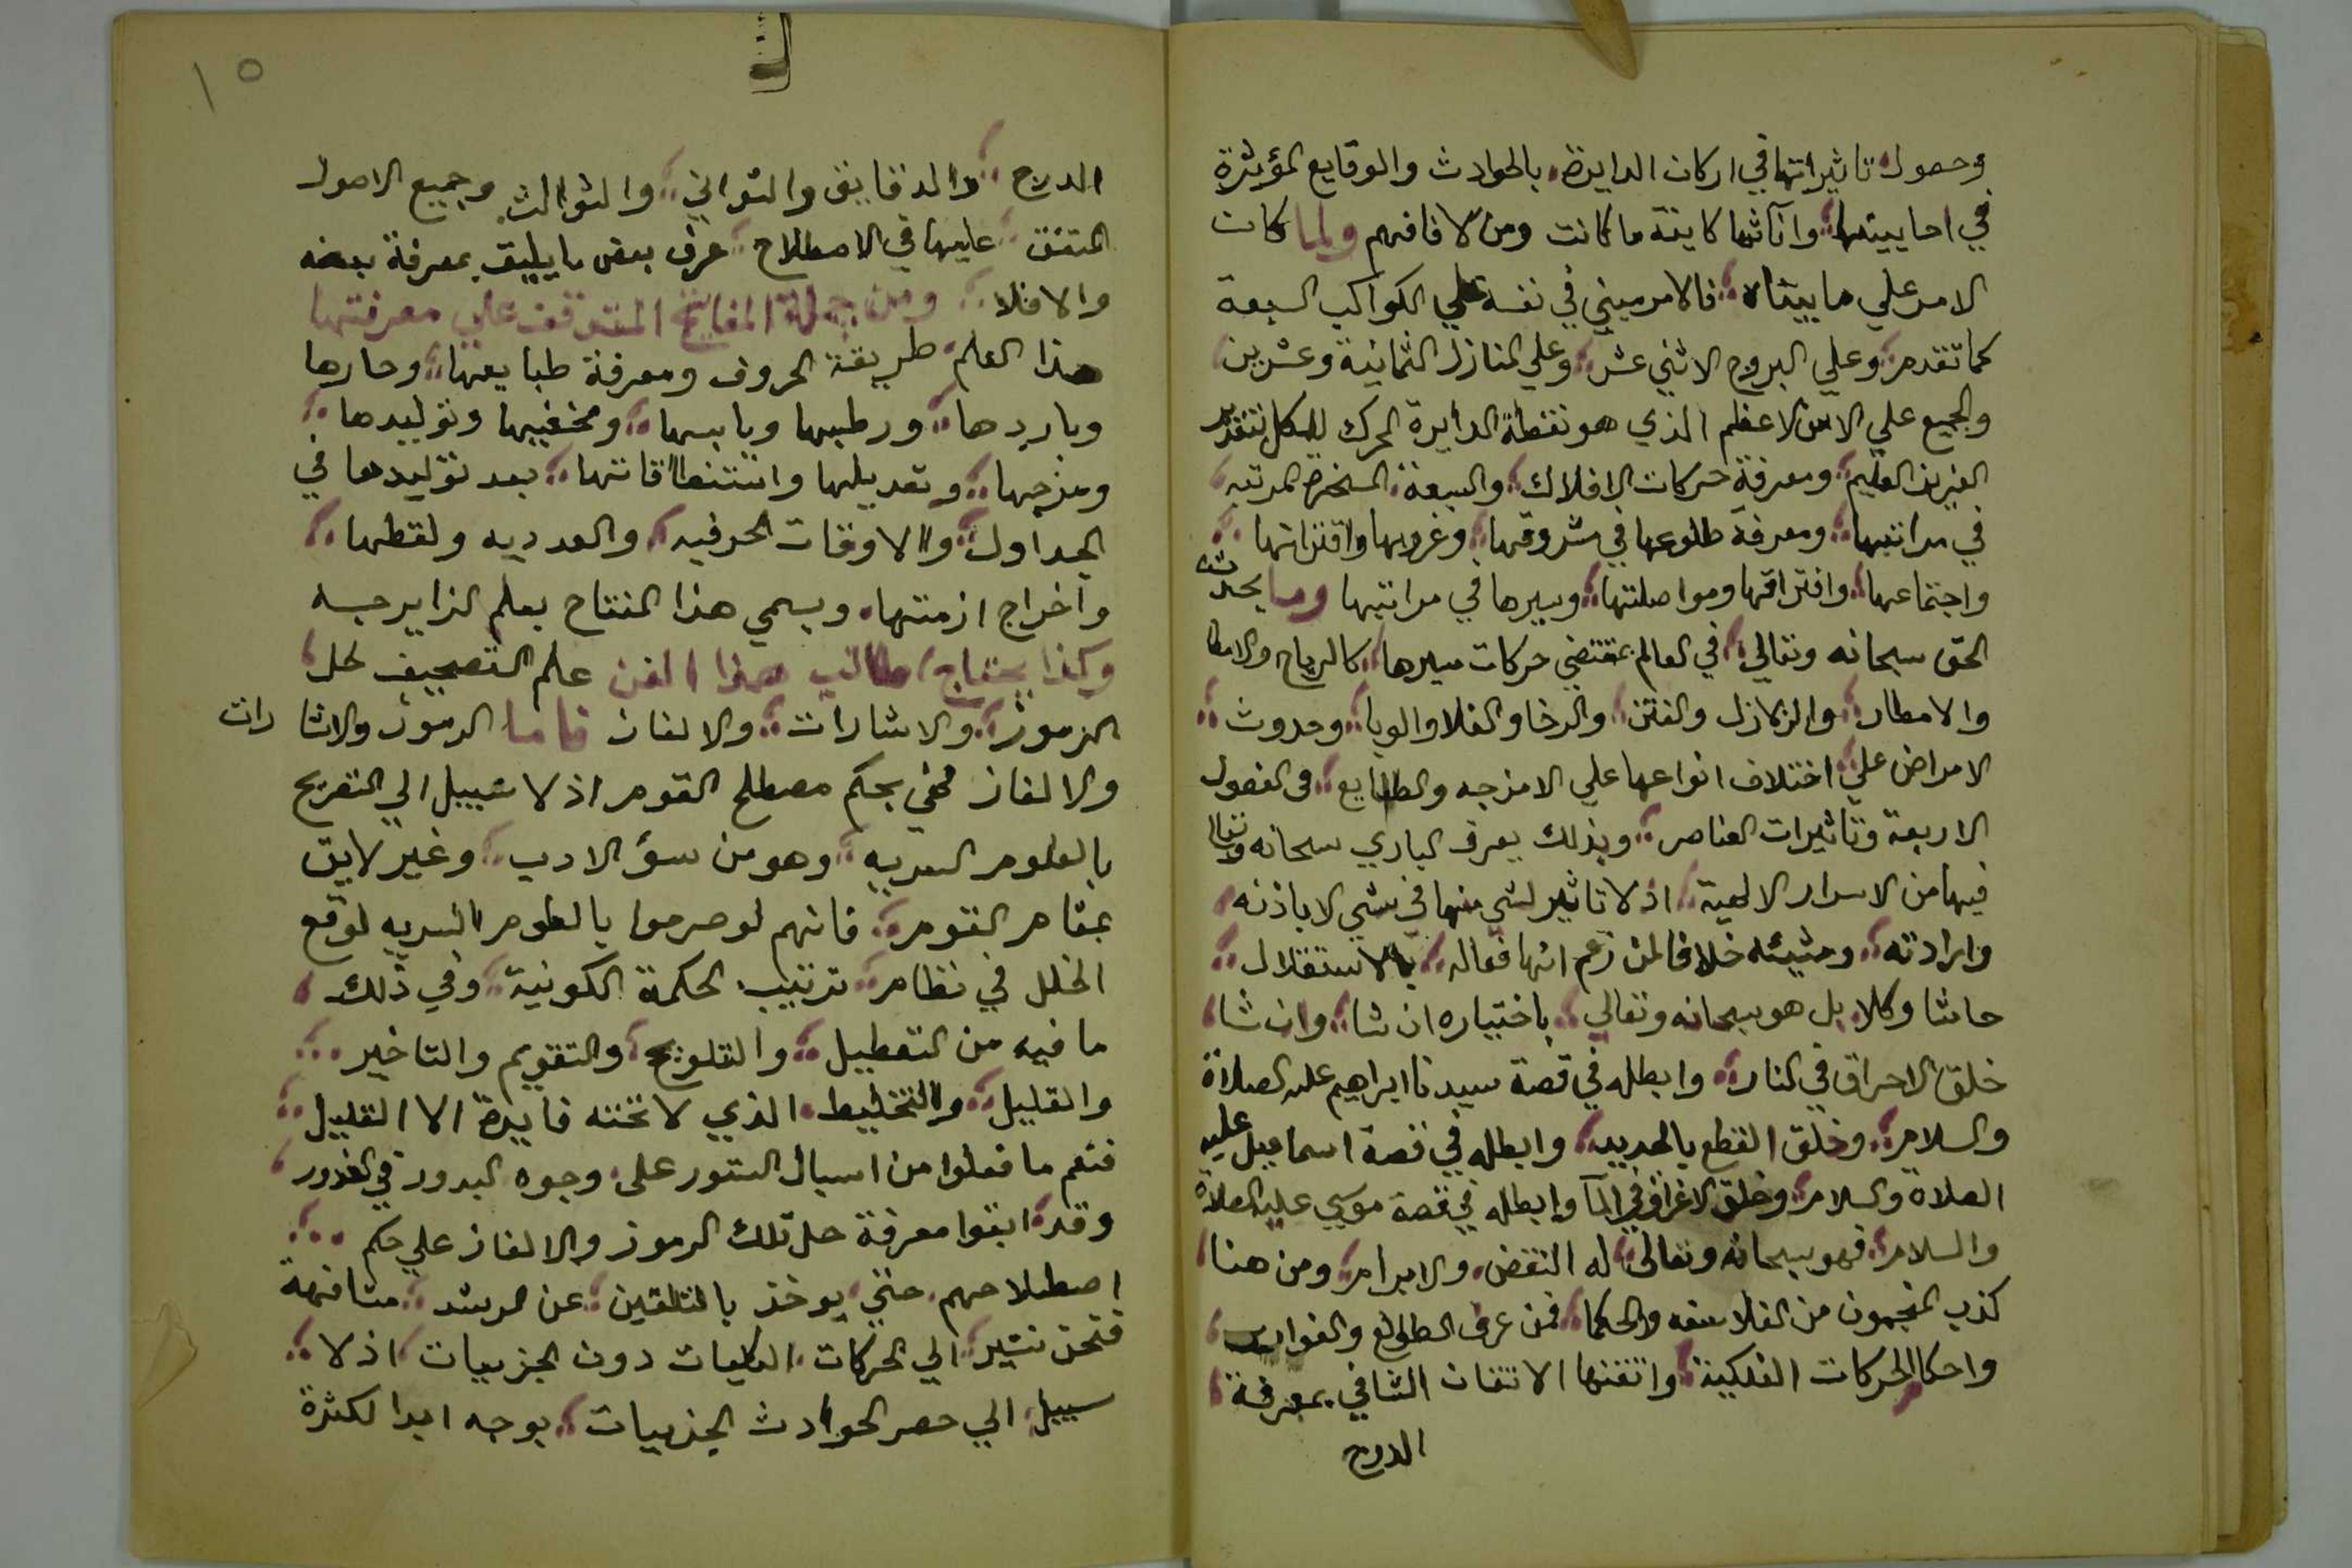 وحصول تاثيراتها في اركان الدايرة بالحوادث والوقايع المؤثرة
في احايينها وانآئها كاينة ما كانت ومن لا فافهم ولما كان
الامر علي ما بيناه فالامر مبني في نفسه علي الكواكب السبعة
كما تقدم وعلي البروج الاثني عشر وعلي المنازل الثمانية وعشرين
والجميع علي الاس الاعظم الذي هو نقطة الدايرة المحرك للكل بتقدير
العزيز العليم ومعرفة حركات الافلاك والسبعة المسخرة المرتبه
في مراتبها ومعرفة طلوعها في شروقها وغروبها واقتراناتها
واجتماعها وافتراقها ومواصلتها وسيرها في مراتبها وما يحدث
الحق سبحانه وتعالي في العالم بمقتضي حركات سيرها كالرياح والامطا
والامطار والزلازل والفتن والرخا والغلا والوبا وحدوث
الامراض علي اختلاف انواعها علي الامزجه والطبايع في الفصول
الاربعة وتاثيرات العناصر وبذلك يعرف الباري سبحانه وتعالى
فيها من الاسرار الالهية اذ لا تاثير لشي منها في شي الا باذنه
وارادته ومشيئه خلافا لمن زعم انها فعاله بالاستقلال
حاشا وكلا بل هو سبحانه وتعالي باختياره ان شا وان شا
خلق الاحراق في النار وابطله في قصة سيدنا ابراهيم عليه الصلاة
والسلام وخلق القطع بالحديد وابطله في قصة اسماعيل عليه
الصلاة والسلام وخلق الاغراق في المآ وابطله في قصة موسي عليه الصلاة
والسلام فهو سبحانه وتعالى له النقض والابرام ومن هنا
كذب المنجمون من الفلاسفه والحكما فمن عرف الطوالع والغوارب
واحكام الحركات الفلكية واتقنها الاتقان الشافي بمعرفة
الدرج
١٥
الدرج والدقايق والثواني والثوالث وجميع الاصول
المتفق عليها في الاصطلاح عرف بعض ما يليق بمعرفة بعضه
والا فلا ومن جملة المفاتيح المتوقف علي معرفتها
هذا العلم طريقة الحروف ومعرفة طبايعها وحارها
وباردها ورطبها ويابسها وتوليدها
ومزجها وتعديلها واستنطاقاتها بعد توليدها في
الجداول والاوفاق الحرفيه والعدديه ولقطها
واخراج ازمنتها ويسمي هذا المفتاح بعلم الزايرجه
وكذا يحتاج طالب هذا الفن علم التصحيف لحل
الرموز والاشارات والالغاز فاما الرموز والاشا رات
والالغاز فهي بحكم مصطلح القوم اذ لا سبيل الي التصريح
بالعلوم السريه وهو من سؤ الادب وغير لايق
بمقام القوم فانهم لو صرحوا بالعلوم السريه لوقع
الخلل في نظام ترتيب الحكمة الكونية وفي ذلك
ما فيه من التعطيل والتلويح والتقويم والتاخير
والقليل والتخليط الذي لا تحته فايدة الا القليل
فنعم ما فعلوا من اسبال الستور على وجوه البدور في الخدور
وقد ابقوا معرفة حل تلك الرموز والالغاز علي حكم
اصطلاحهم حتي يوخذ بالتلقين عن مرشد مشافهة
فنحن نشير الي الحركات الكليات دون الجزييات اذ لا
سبيل الي حصر الحوادث الجزييات بوجه ابدا لكثرة